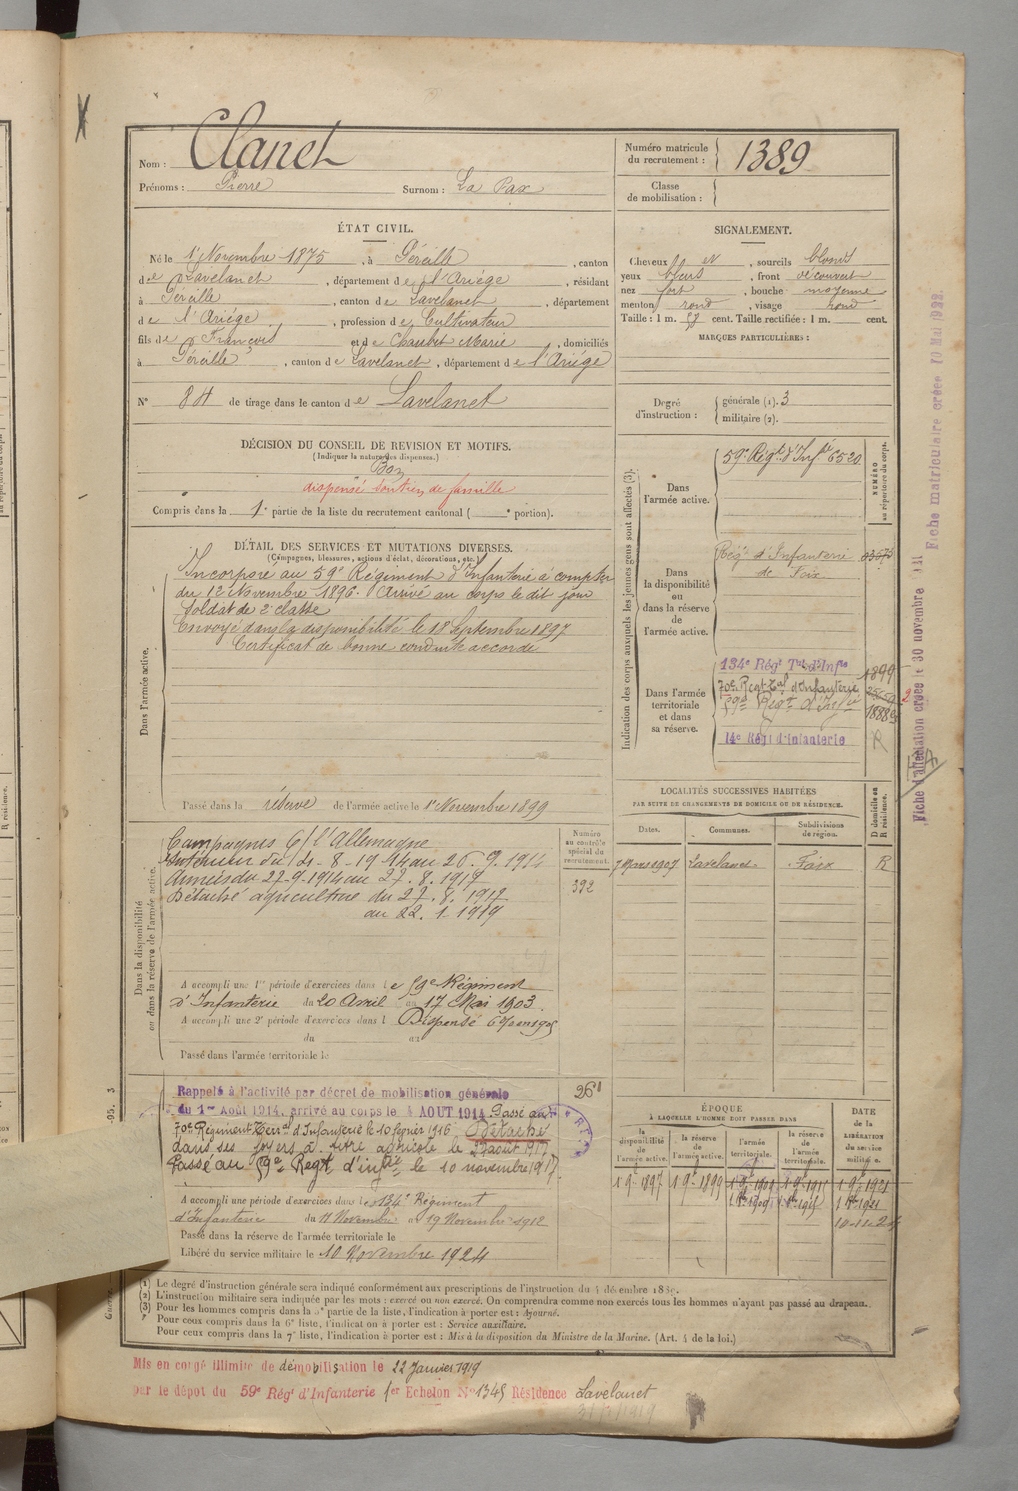 Nom : Clanet
Prénoms : Pierre Surnom : La Pax
Numéro matricule du recrutement : 1389
Classe de mobilisation :
ÉTAT CIVIL.
Né le 1er Novembre 1875, à Péreille, canton
de Lavelanet, département de l'Ariége, résidant
à Péreille, canton de Lavelanet, département
de l'Ariége, profession de Cultivateur
fils de François et de Chaubet Marie, domiciliés
à Péreille, canton de Lavelanet, département de l'Ariége
N° 84 de tirage dans le canton de Lavelanet
SIGNALEMENT.
Cheveux et sourcils blonds
yeux bleus, front découvert
nez fort, bouche moyenne
menton rond, visage rond
Taille : 1 m. cent. Taille rectifiée : 1 m. cent.
MARQUES PARTICULIÈRES :
Degré d'instruction : générale (1). 3
militaire (2).
DÉCISION DU CONSEIL DE REVISION ET MOTIFS.
(Indiquer la nature des dispenses.)
Bon
dispensé soutien de famille
Compris dans la 1e partie de la liste du recrutement cantonal ( e portion).
DÉTAIL DES SERVICES ET MUTATIONS DIVERSES.
(Campagnes, blessures, actions d'éclat, décorations, etc.)
Dans l'armée active.
Incorporé au 59e Régiment d'Infanterie à compter
du 12 Novembre 1896. Arrivé au corps le dit jour
Soldat de 2e classe
Envoyé dans la disponibilité le 18 Septembre 1897
Certificat de bonne conduite accordé
Passé dans la réserve de l'armée active le 1er Novembre 1899
Indication des corps auxquels les jeunes gens sont affectés (3).
NUMÉRO au répertoire du corps.
Dans l'armée active.
59e Régt d'Infie 6520
Dans la disponibilité ou dans la réserve de l'armée active.
Régt d'Infanterie
de Foix
Dans l'armée territoriale et dans sa réserve.
134e Régt Tal d'Infie 1899
70e Regt Tal d'Infanterie
59e Régt d'Infie
14e Régt d'Infanterie R
Dans la disponibilité ou dans la réserve de l'armée active.
Campagnes C/ l'Allemagne
Intérieur du 4-8-1914 au 26.9.1914
Armées du 27-9-1914 au 27.8.1917
Détaché agriculture du 27.8.1917
au 22.1.1919
Numéro au contrôle spécial du recrutement.
392
A accompli une 1re période d'exercices dans le 59e Régiment
d'Infanterie du 20 Avril au 17 Mai 1903
A accompli une 2e période d'exercices dans l Dispensé 6% en 1905
du au
Passé dans l'armée territoriale le
LOCALITÉS SUCCESSIVES HABITÉES
PAR SUITE DE CHANGEMENTS DE DOMICILE OU DE RÉSIDENCE.
Dates. Communes. Subdivisions de région. D domicile ou R résidence.
7 Mars 1907 Lavelanet Foix R
Rappelé à l'activité par décret de mobilisation générale 261
du 1er Août 1914, arrivé au corps le 4 AOUT 1914. Passé au
70e Régiment Terral d'Infanterie le 10 février 1916 Détaché
dans ses foyers à titre agricole le 27 août 1917
Passé au 59e Regt d'infie le 10 novembre 1917
A accompli une période d'exercices dans le 134e Régiment
d'Infanterie du 11 Novembre au 19 Novembre 1912
Passé dans la réserve de l'armée territoriale le
Libéré du service militaire le 10 Novembre 1924
ÉPOQUE
À LAQUELLE L'HOMME DOIT PASSER DANS
la disponibilité de l'armée active. la réserve de l'armée active. l'armée territoriale. la réserve de l'armée territoriale.
DATE DE LA LIBÉRATION DU SERVICE militaire.
1 9e 1897 1 9e 1899 1 9e 1909 1 9e 1921
(1) Le degré d'instruction générale sera indiqué conformément aux prescriptions de l'instruction du 4 décembre 1889.
(2) L'instruction militaire sera indiquée par les mots : exercé ou non exercé. On comprendra comme non exercés tous les hommes n'ayant pas passé au drapeau.
(3) Pour les hommes compris dans la 5e partie de la liste, l'indication à porter est : Ajourné.
Pour ceux compris dans la 6e liste, l'indication à porter est : Service auxiliaire.
Pour ceux compris dans la 7e liste, l'indication à porter est : Mis à la disposition du Ministre de la Marine. (Art. 4 de la loi.)
Mis en congé illimité de démobilisation le 22 Janvier 1919
par le dépôt du 59e Régt d'Infanterie 1er Echelon N° 1345 Résidence Lavelanet
Fiche matriculaire créée 10 Mai 1922.
Fiche d'affectation créée le 30 novembre